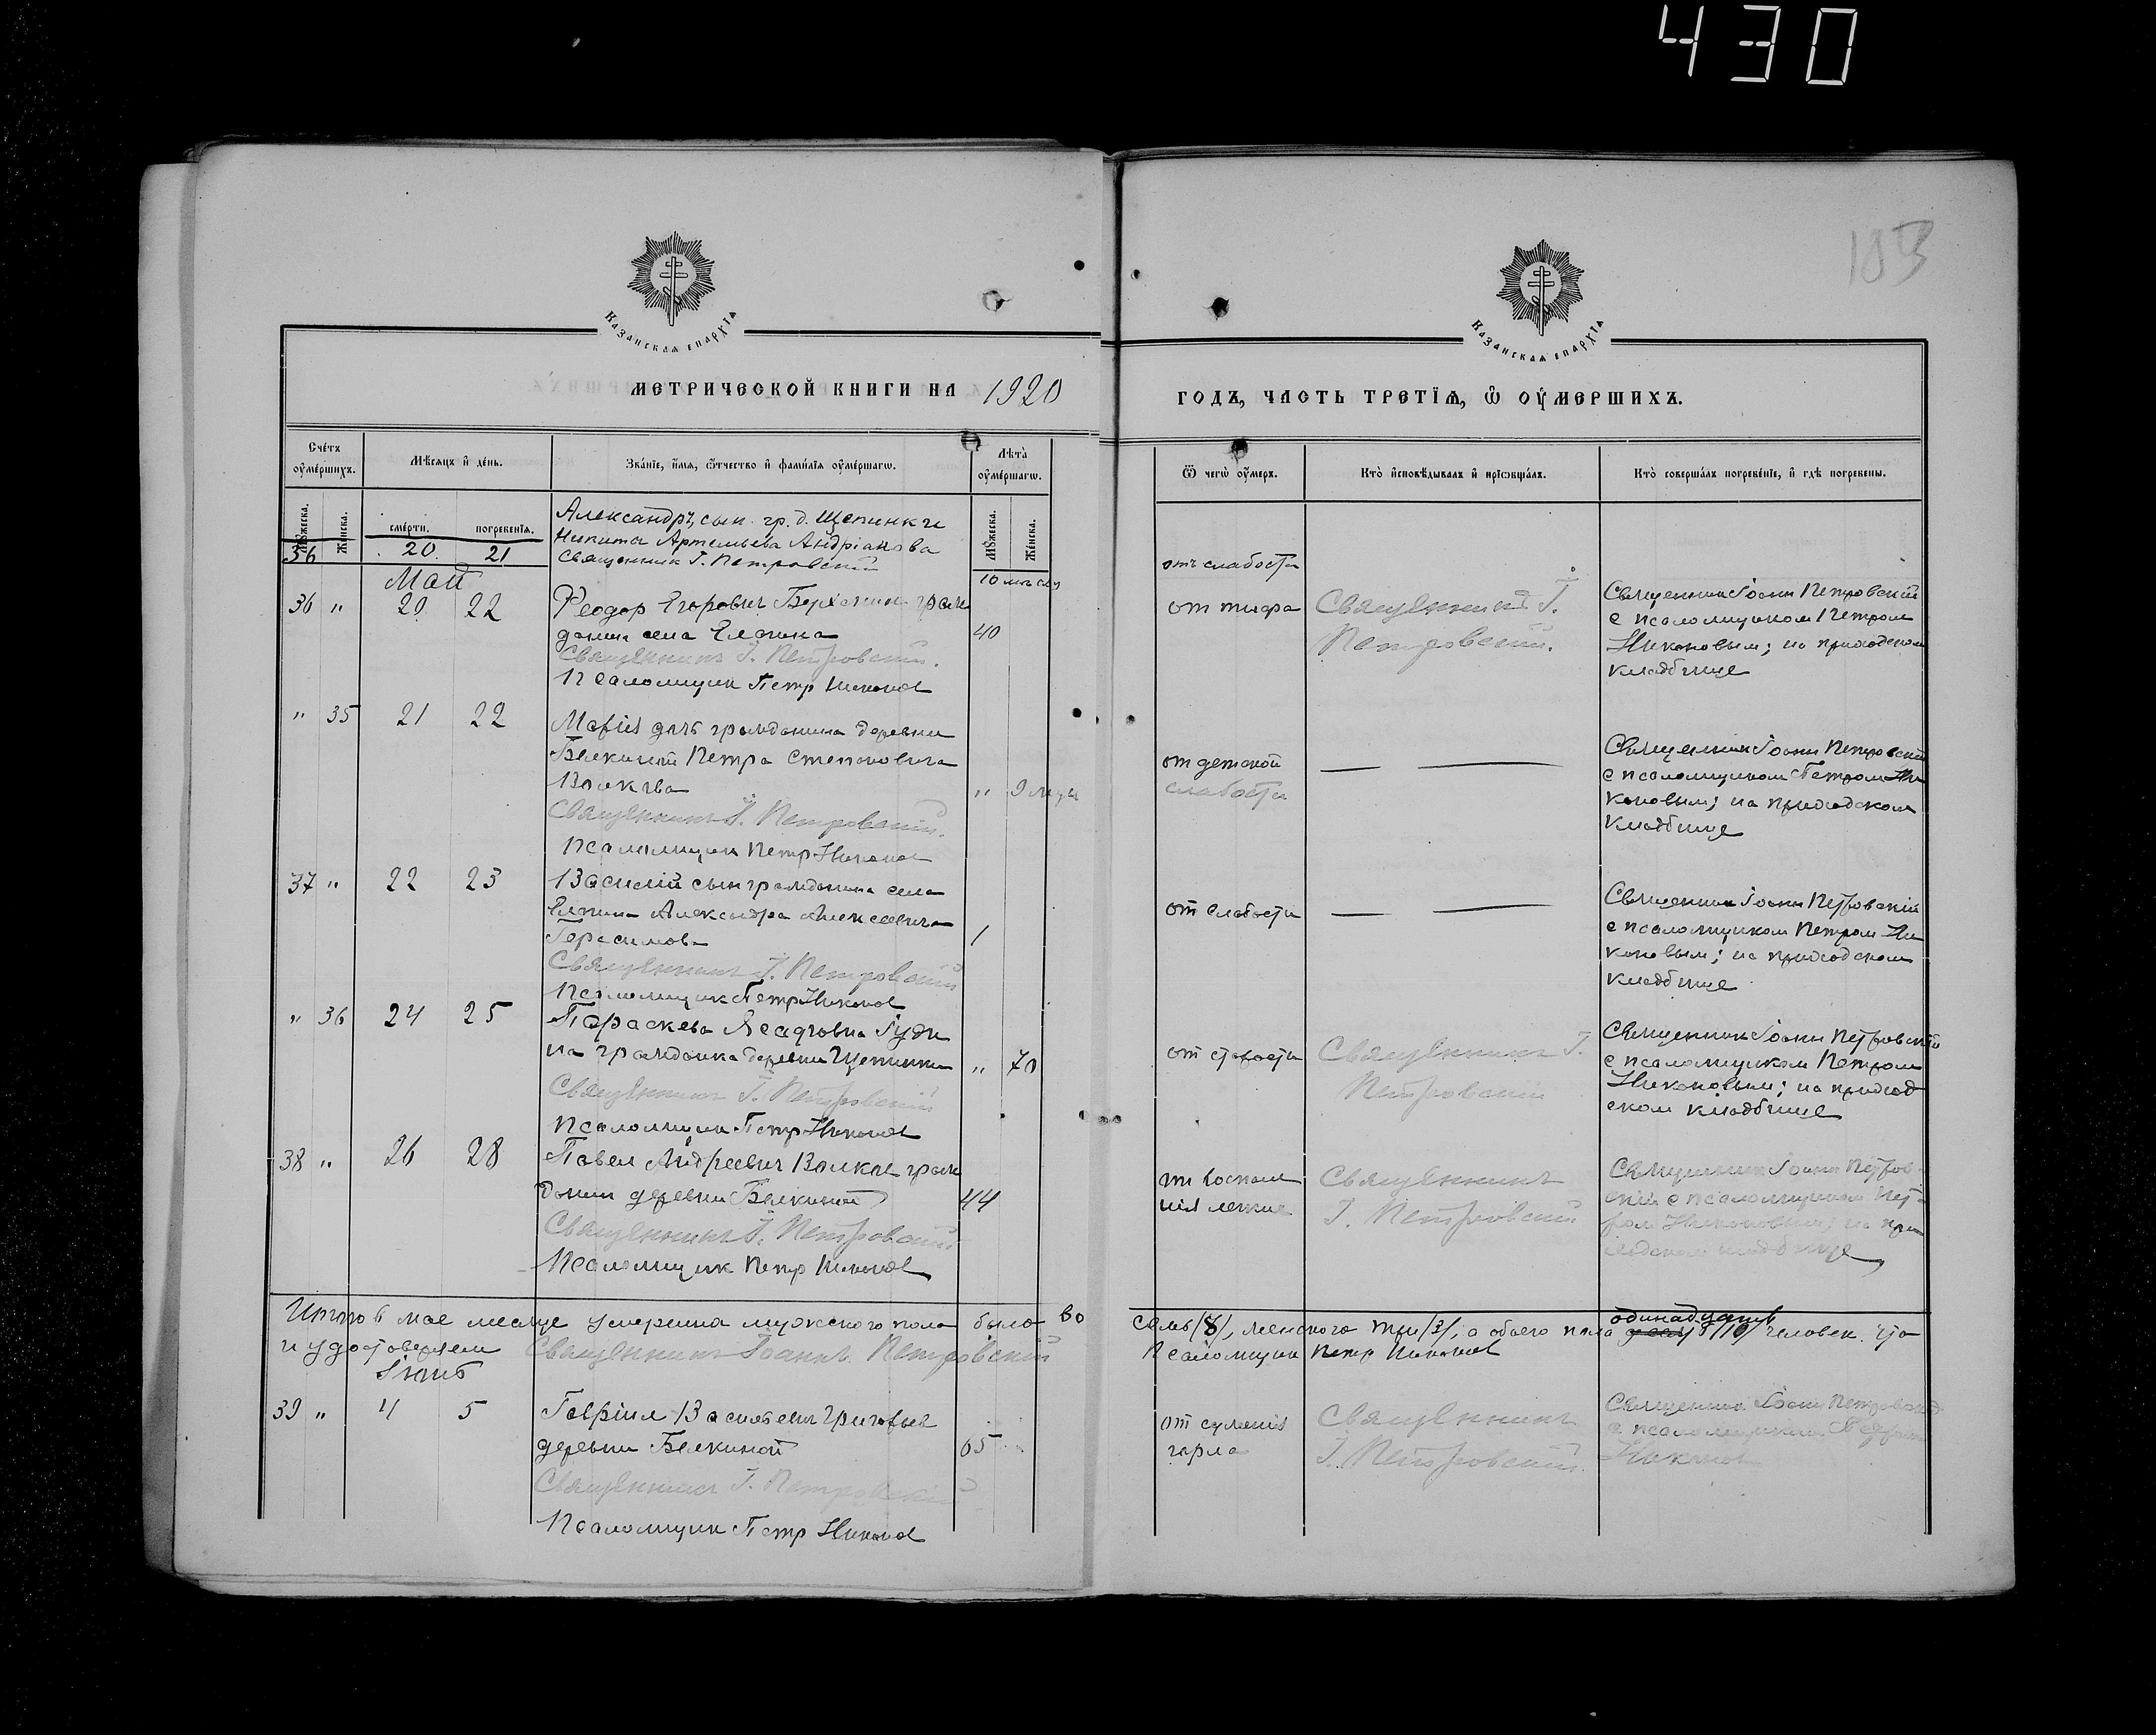 430
183
Казанская епархїѧ
Казанская епархїѧ
МЕТРИЧЕСКОЙ КНИГИ НА 1920
ГОДЪ, ЧАСТЬ ТРЕТЇѦ, Ѡ ОУМЕРШИХЪ.
Счетъ оумершихъ.
Мѣсяцъ и день.
Званїе, имя, отчество и фамилїя оумершагѡ.
Лѣта оумершагѡ.
Ѿ чегѡ оумеръ.
Кто исповѣдывалъ и прїѡбщалъ.
Кто совершалъ погребенїе, и гдѣ погребены.
Мꙋжеска.
Женска.
смерти.
погребенїя.
Мꙋжеска.
Женска.
36 20 21
Александръ, сын гр. д. Щепинки
Никиты Артемьева Андріанова
Священник І. Петровскій
10 месяц
отъ слабости
Май
36 " 20 22
Феодор Егорович граж
данин села
40
Священникъ І. Петровскій.
Псаломщик Петр Никонов
от тифа
Священникъ І.
Петровскій.
Священник Іоанн Петровскій
с псаломщиком Петром
Никоновым; на приходском
кладбище
" 35 21 22
Марія дочь гражданина деревни
Белкиной Петра Степановича
Волкова
" 9 мец
Священникъ І. Петровскій.
Псаломщик Петр Никонов
от детской
слабости
Священник Іоанн Петровскій
с псаломщиком Петром Ни
коновым; на приходском
кладбище
37 " 22 23
Василій сын гражданина села
Александра Алексеевича
Герасимова
1
Священникъ І. Петровскій
Псаломщик Петр Никонов
от слабости
Священник Іоанн Петровскій
с псаломщиком Петром Ни
коновым; на приходском
кладбище
" 36 24 25
Параскева
на гражданка деревни Щепинки
" 70
Священникъ І. Петровскій
Псаломщик Петр Никонов
от старости
Священникъ І.
Петровскій
Священник Іоанн Петровскій
с псаломщиком Петром
Никоновым; на приход
ском кладбище
38 " 26 28
Павел Андреевич Волков граж
данин деревни Белкиной
44
Священникъ І. Петровскій
Псаломщик Петр Никонов
от воспале
нія легких
Священникъ
І. Петровскій
Священник Іоанн Петров
скій с псаломщиком Пет
ром Никоновым; на при
ходском кладбище
Итого в мае месяце умершика мужского пола было во
семь /8/, женского три /3/, а обоего пола одинадцать /10/ человек. Что
и удостоверяем Священникъ Іоаннъ Петровскій
Псаломщик Петр Никонов
Іюнь
39 " 4 5
Гавріил Васильевич Григорьев
деревни Белкиной
65
Священникъ І. Петровскій
Псаломщик Петр Никонов
от суженія
горла
Священникъ
І. Петровскій.
Священник Іоанн Петровскій
с псаломщиком Петром
Никонов